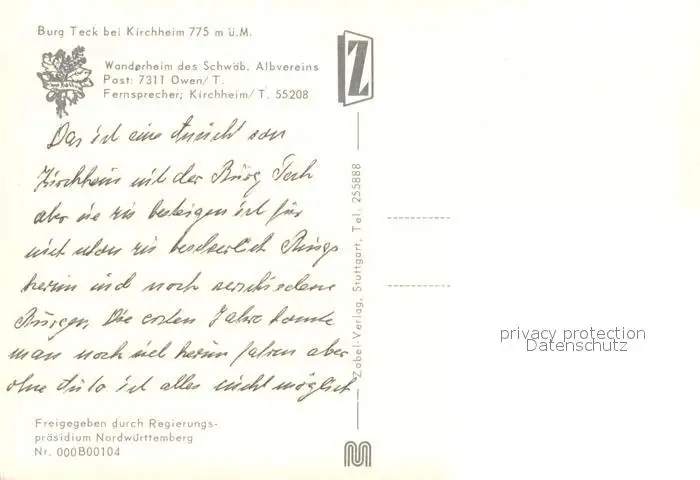 Burg Teck bei Kirchheim 775 m ü.M.
Wanderheim des Schwäb. Albvereins
Post: 7311 Owen/T.
Fernsprecher; Kirchheim/T. 55208
Das ist eine Ansicht von
Kirchheim mit der Burg Teck
aber sie zu besteigen ist für
mich schon zu beschwerlich Rings
herum sind noch verschiedene
Burgen, Die ersten Jahre konnte
man noch viel herum fahren aber
ohne Auto ist alles nicht möglich
Freigegeben durch Regierungs-
präsidium Nordwürttemberg
Nr. 000B00104
Z
Zobel-Verlag, Stuttgart, Tel. 255888
privacy protection
Datenschutz